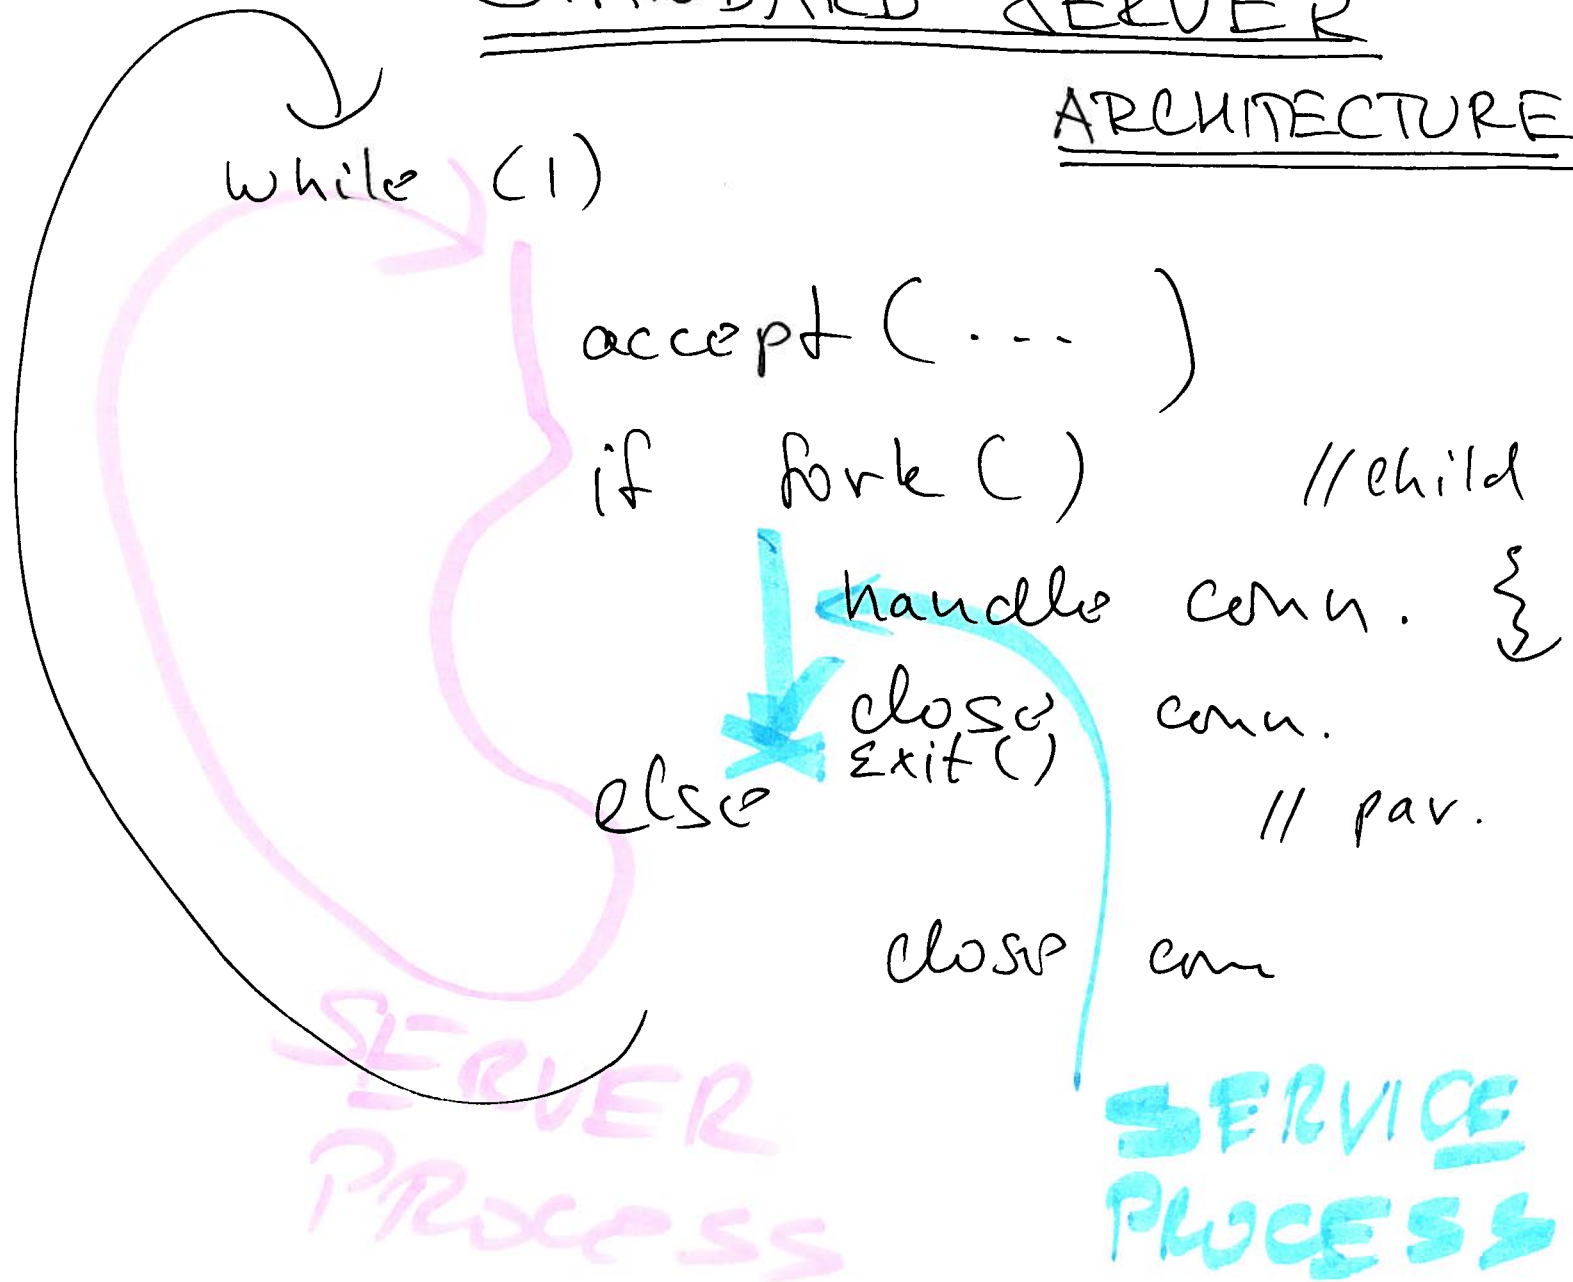 STANDARD SERVER
ARCHITECTURE
while (1)
accept (... )
if fork ( ) //child
handle conn. }
close conn.
Exit ()
else // par.
close conn
SERVER
PROCESS
SERVICE
PROCESS